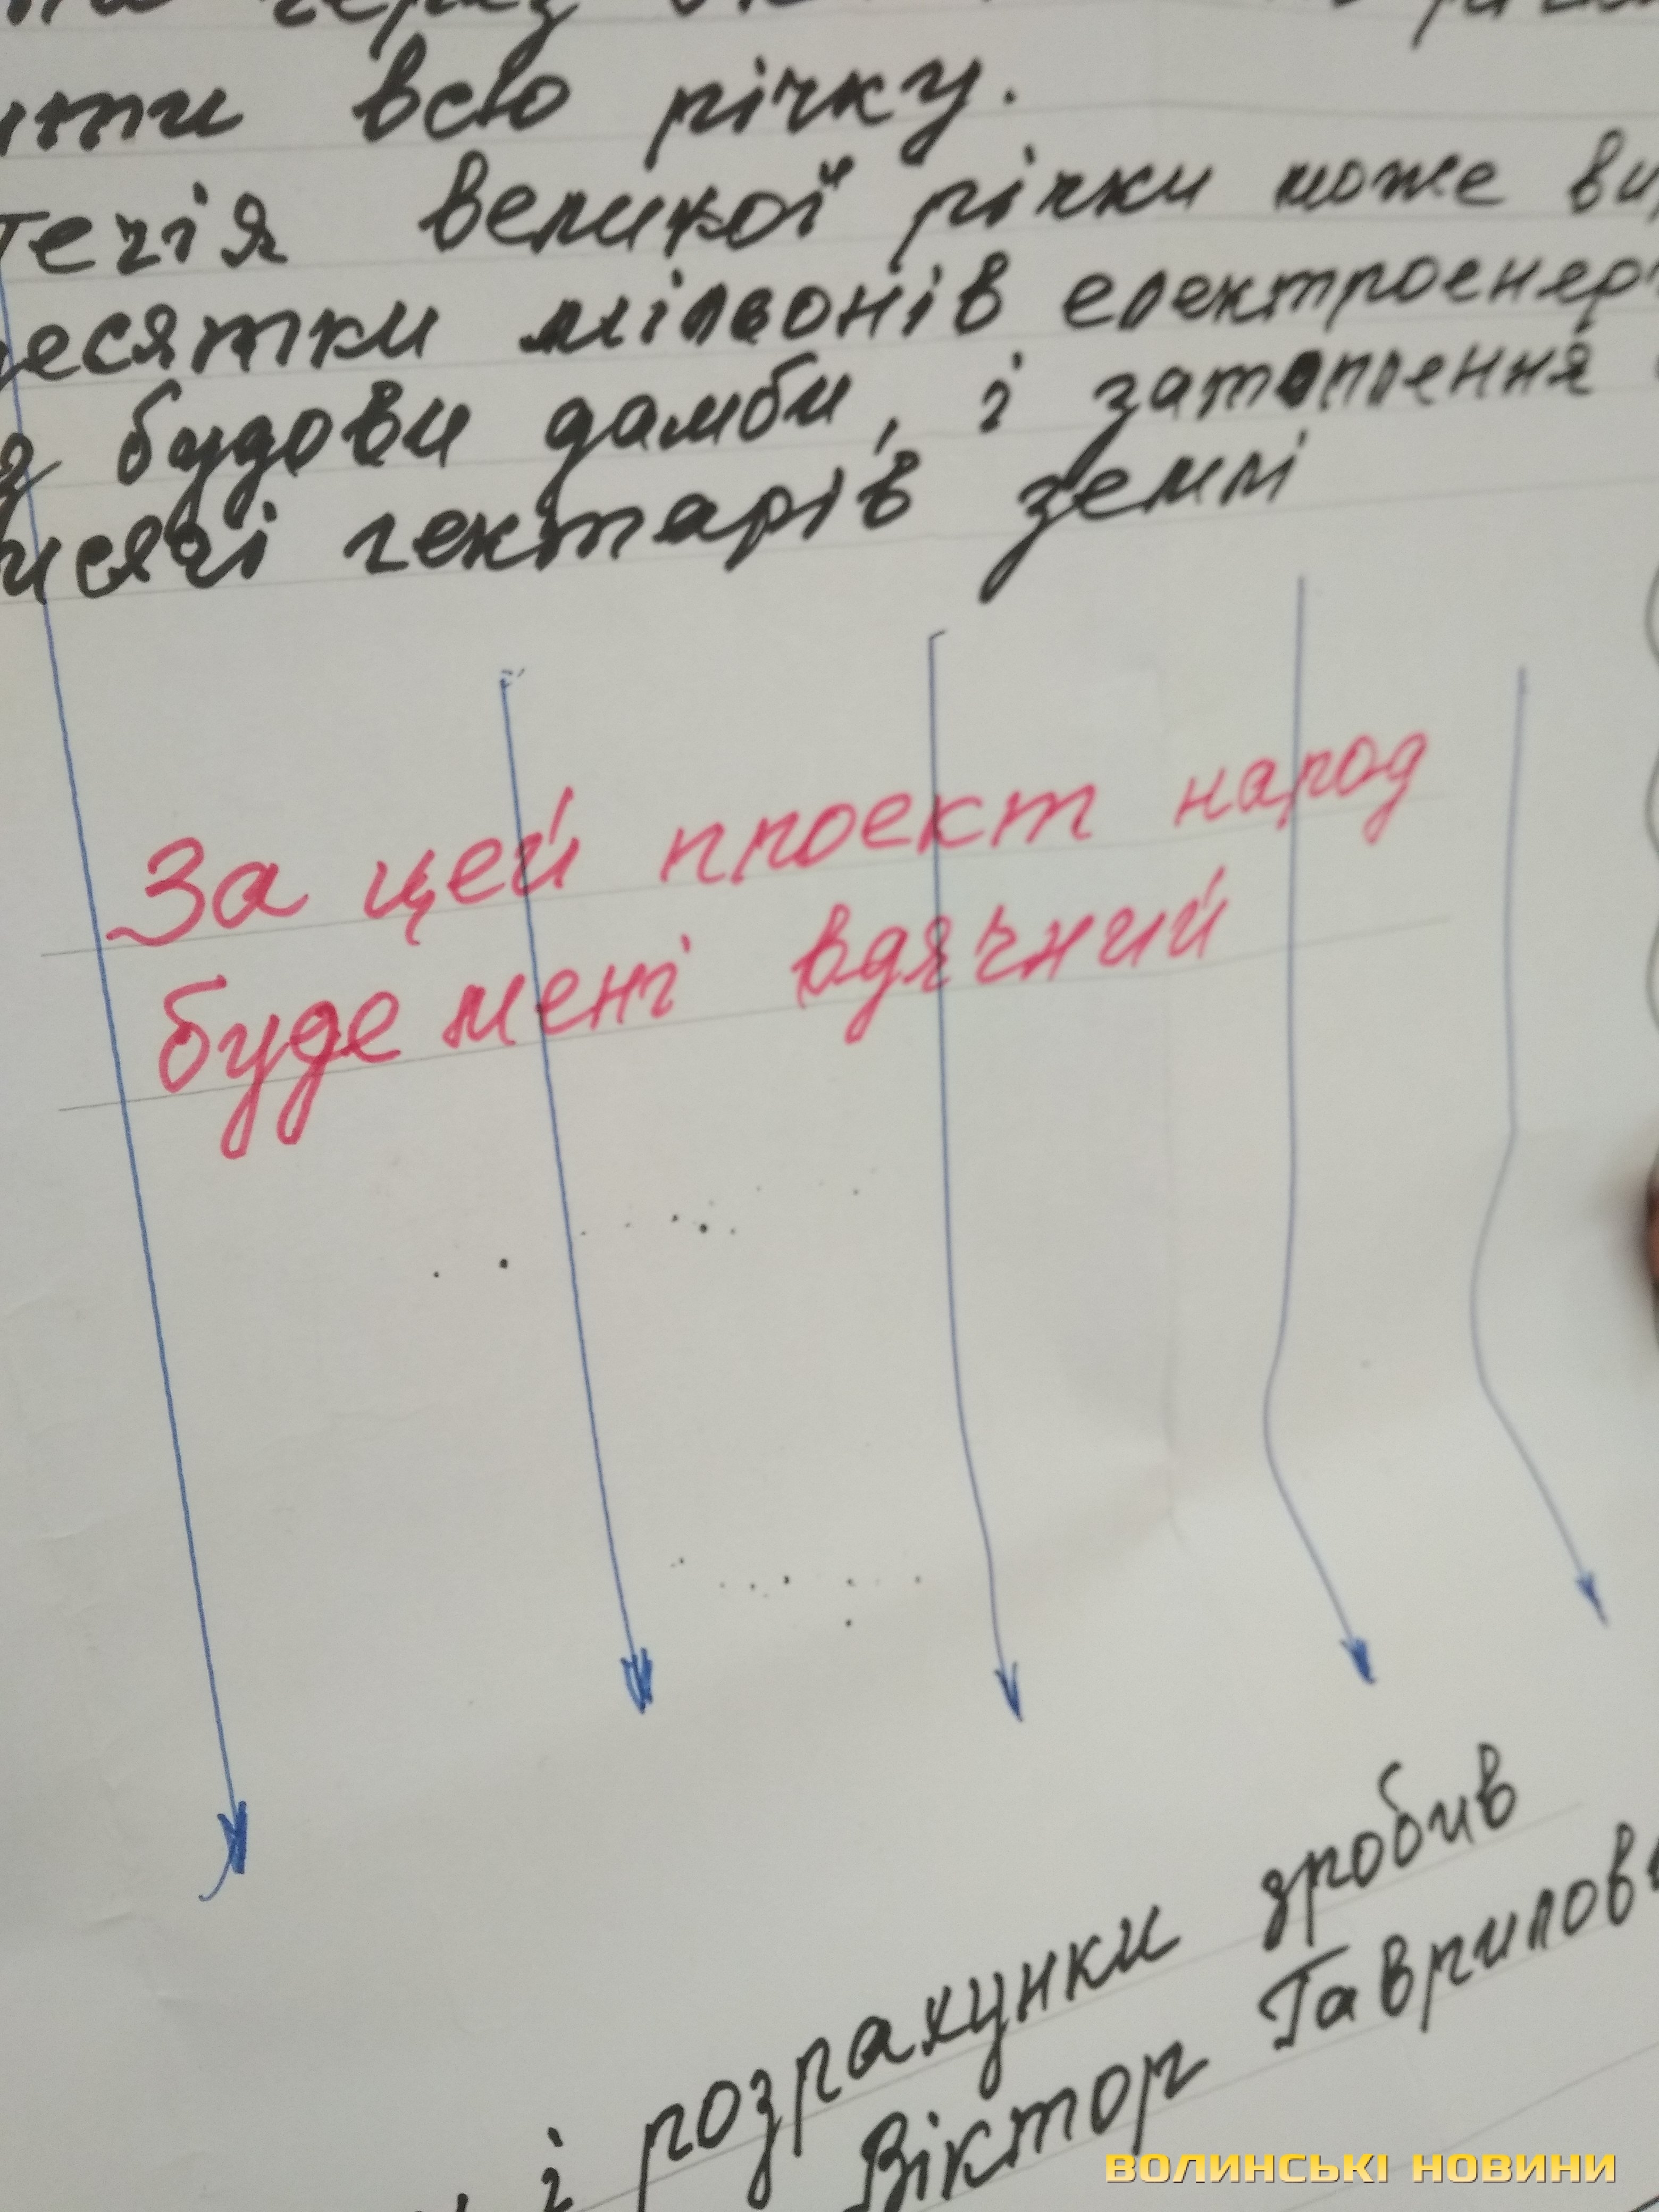 через
ити всю річку.
течія великої річки може
десятки мілвонів електроенер
з будови дамби, і затоплення
исячі гектарів землі
За цей проект народ
буде мені вдячний
і розрахунки зробив
Віктор Гаврилов
ВОЛИНСЬКІ НОВИНИ